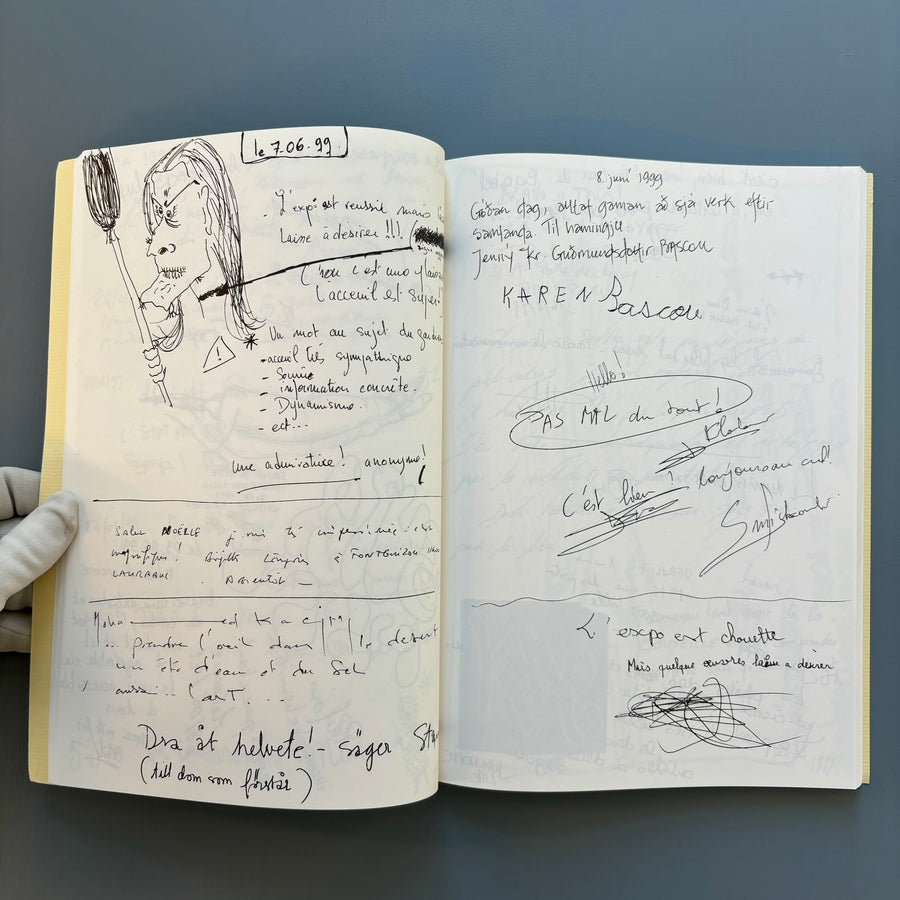 le 7.06.99
- L'expo est reussie mais
laisse à desirer !!! (
(non c'est une plaisan
l'acceuil est super
* Un mot au sujet du gardien
- acceuil très sympathique
- Sourire
- information concrète.
- Dynamisme.
- ect...
une admiratrice ! anonyme !
SALUT NOËLLE
magnifique ! Brigitte à
LAURABUC . A Bientôt —
Moha
... prendre l'oeil dans le desert
un été d'eau et du Sel
aussi ... L'arT. ...
Dra åt helvete! - säger
(till dom som förstår)
8. juni 1999
Góðan dag, alltaf gaman að sjá verk eftir
samlanda. Til hamingju
Jenný Kr. Guðmundsdottir PASCOU
KAREN Pascou
Hello!
PAS MAL du tout !
C'est bien ! Bonjour au
L'expo est chouette
Mais quelque oeuvres laisse a désirer